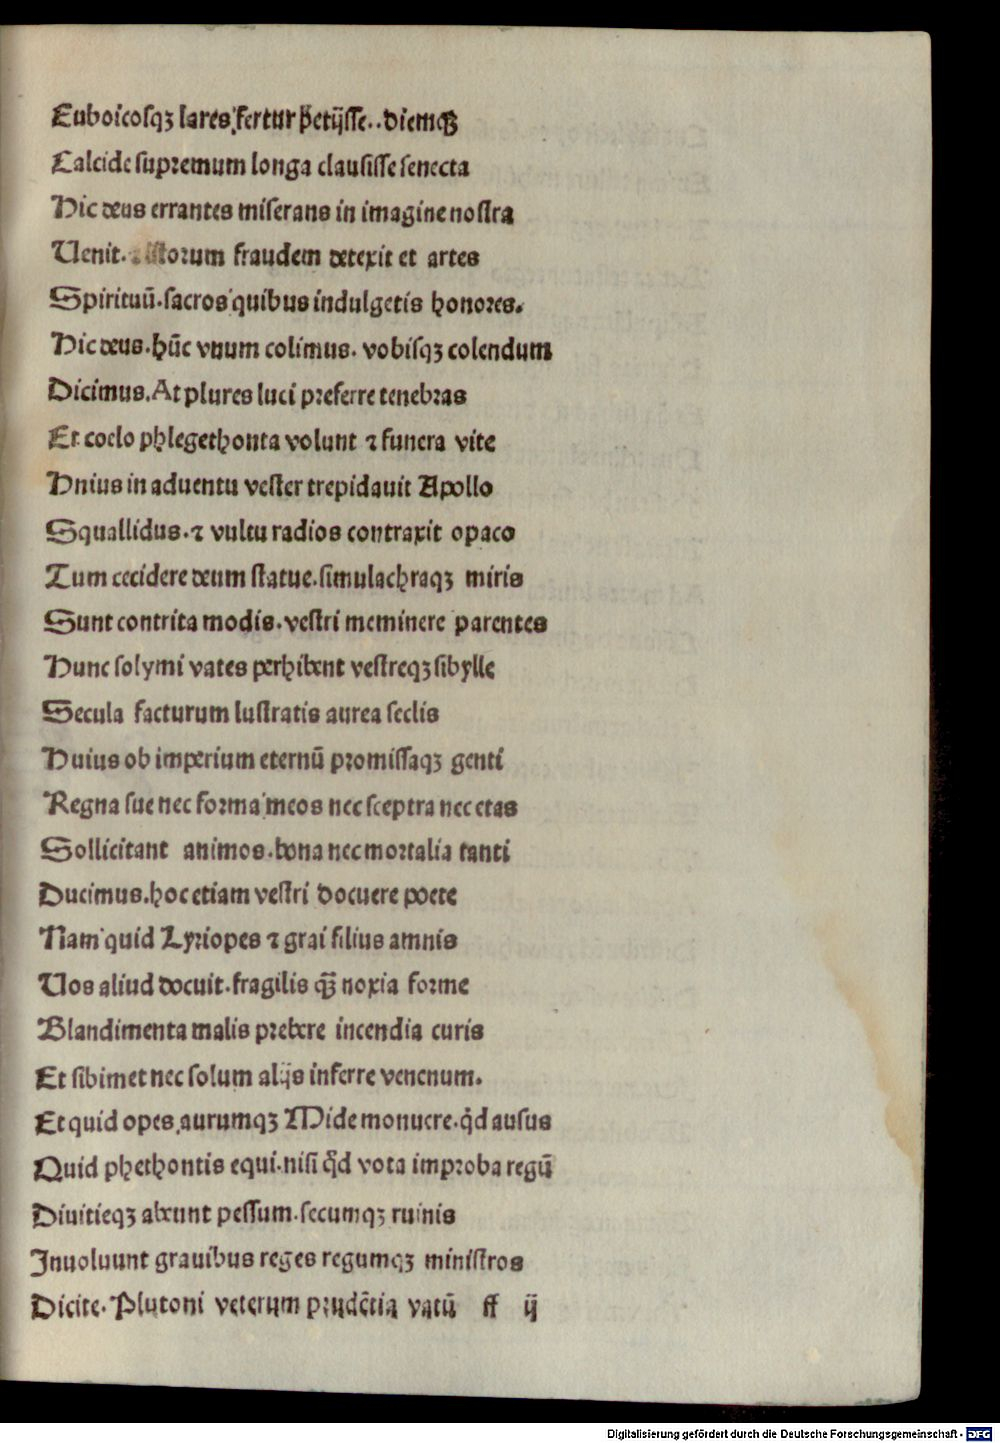 Euboicosqꝫ lares, fertur petijſſe.. diemqꝫ
Calcide ſupremum longa clauſiſſe ſenecta
Hic deus errantes miſerans in imagine noſtra
Uenit. fraudem detexit et artes
Spirituū. ſacros quibus indulgetis honores.
Hic deus. hūc vnum colimus. vobiſqꝫ colendum
Dicimus. At plures luci preferre tenebras
Et coelo phlegethonta volunt ⁊ funera vite
Hnius in aduentu veſter trepidauit Apollo
Squallidus. ⁊ vultu radios contraxit opaco
Tum cecidere deum ſtatue. ſimulachraqꝫ miris
Sunt contrita modis. veſtri meminere parentes
Hunc ſolymi vates perhibent veſtreqꝫ ſibylle
Secula facturum luſtratis aurea ſeclis
Huius ob imperium eternū promiſſaqꝫ genti
Regna ſue nec forma meos nec ſceptra nec etas
Sollicitant animos. bona nec mortalia tanti
Ducimus. hoc etiam veſtri docuere poete
Nam quid Lyriopes ⁊ grai filius amnis
Uos aliud docuit. fragilis qꝫ̄ noxia forme
Blandimenta malis prebere incendia curis
Et ſibimet nec ſolum alijs inferre venenum.
Et quid opes, aurumqꝫ Mide monuere. qd̓ auſus
Quid phethontis equi. niſi qd̓ vota improba regū
Diuitieqꝫ abeunt peſſum. ſecumqꝫ ruinis
Inuoluunt grauibus reges regumqꝫ miniſtros
Dicite. Plutoni veterum prudētia vatū ff ij
Digitalisierung gefördert durch die Deutsche Forschungsgemeinschaft - DFG